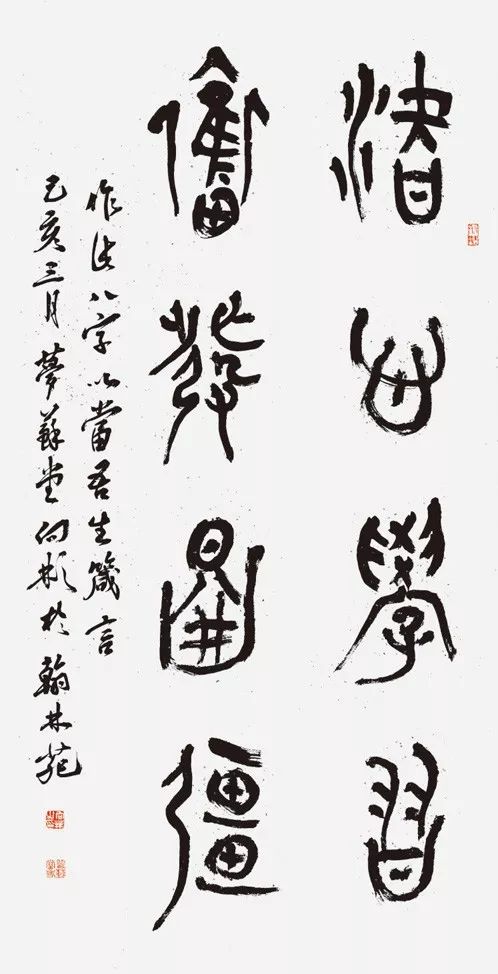 潛心學習
奮發圖彊
作此八字以當吾生箴言
己亥三月夢蘇堂向彬於翰林苑